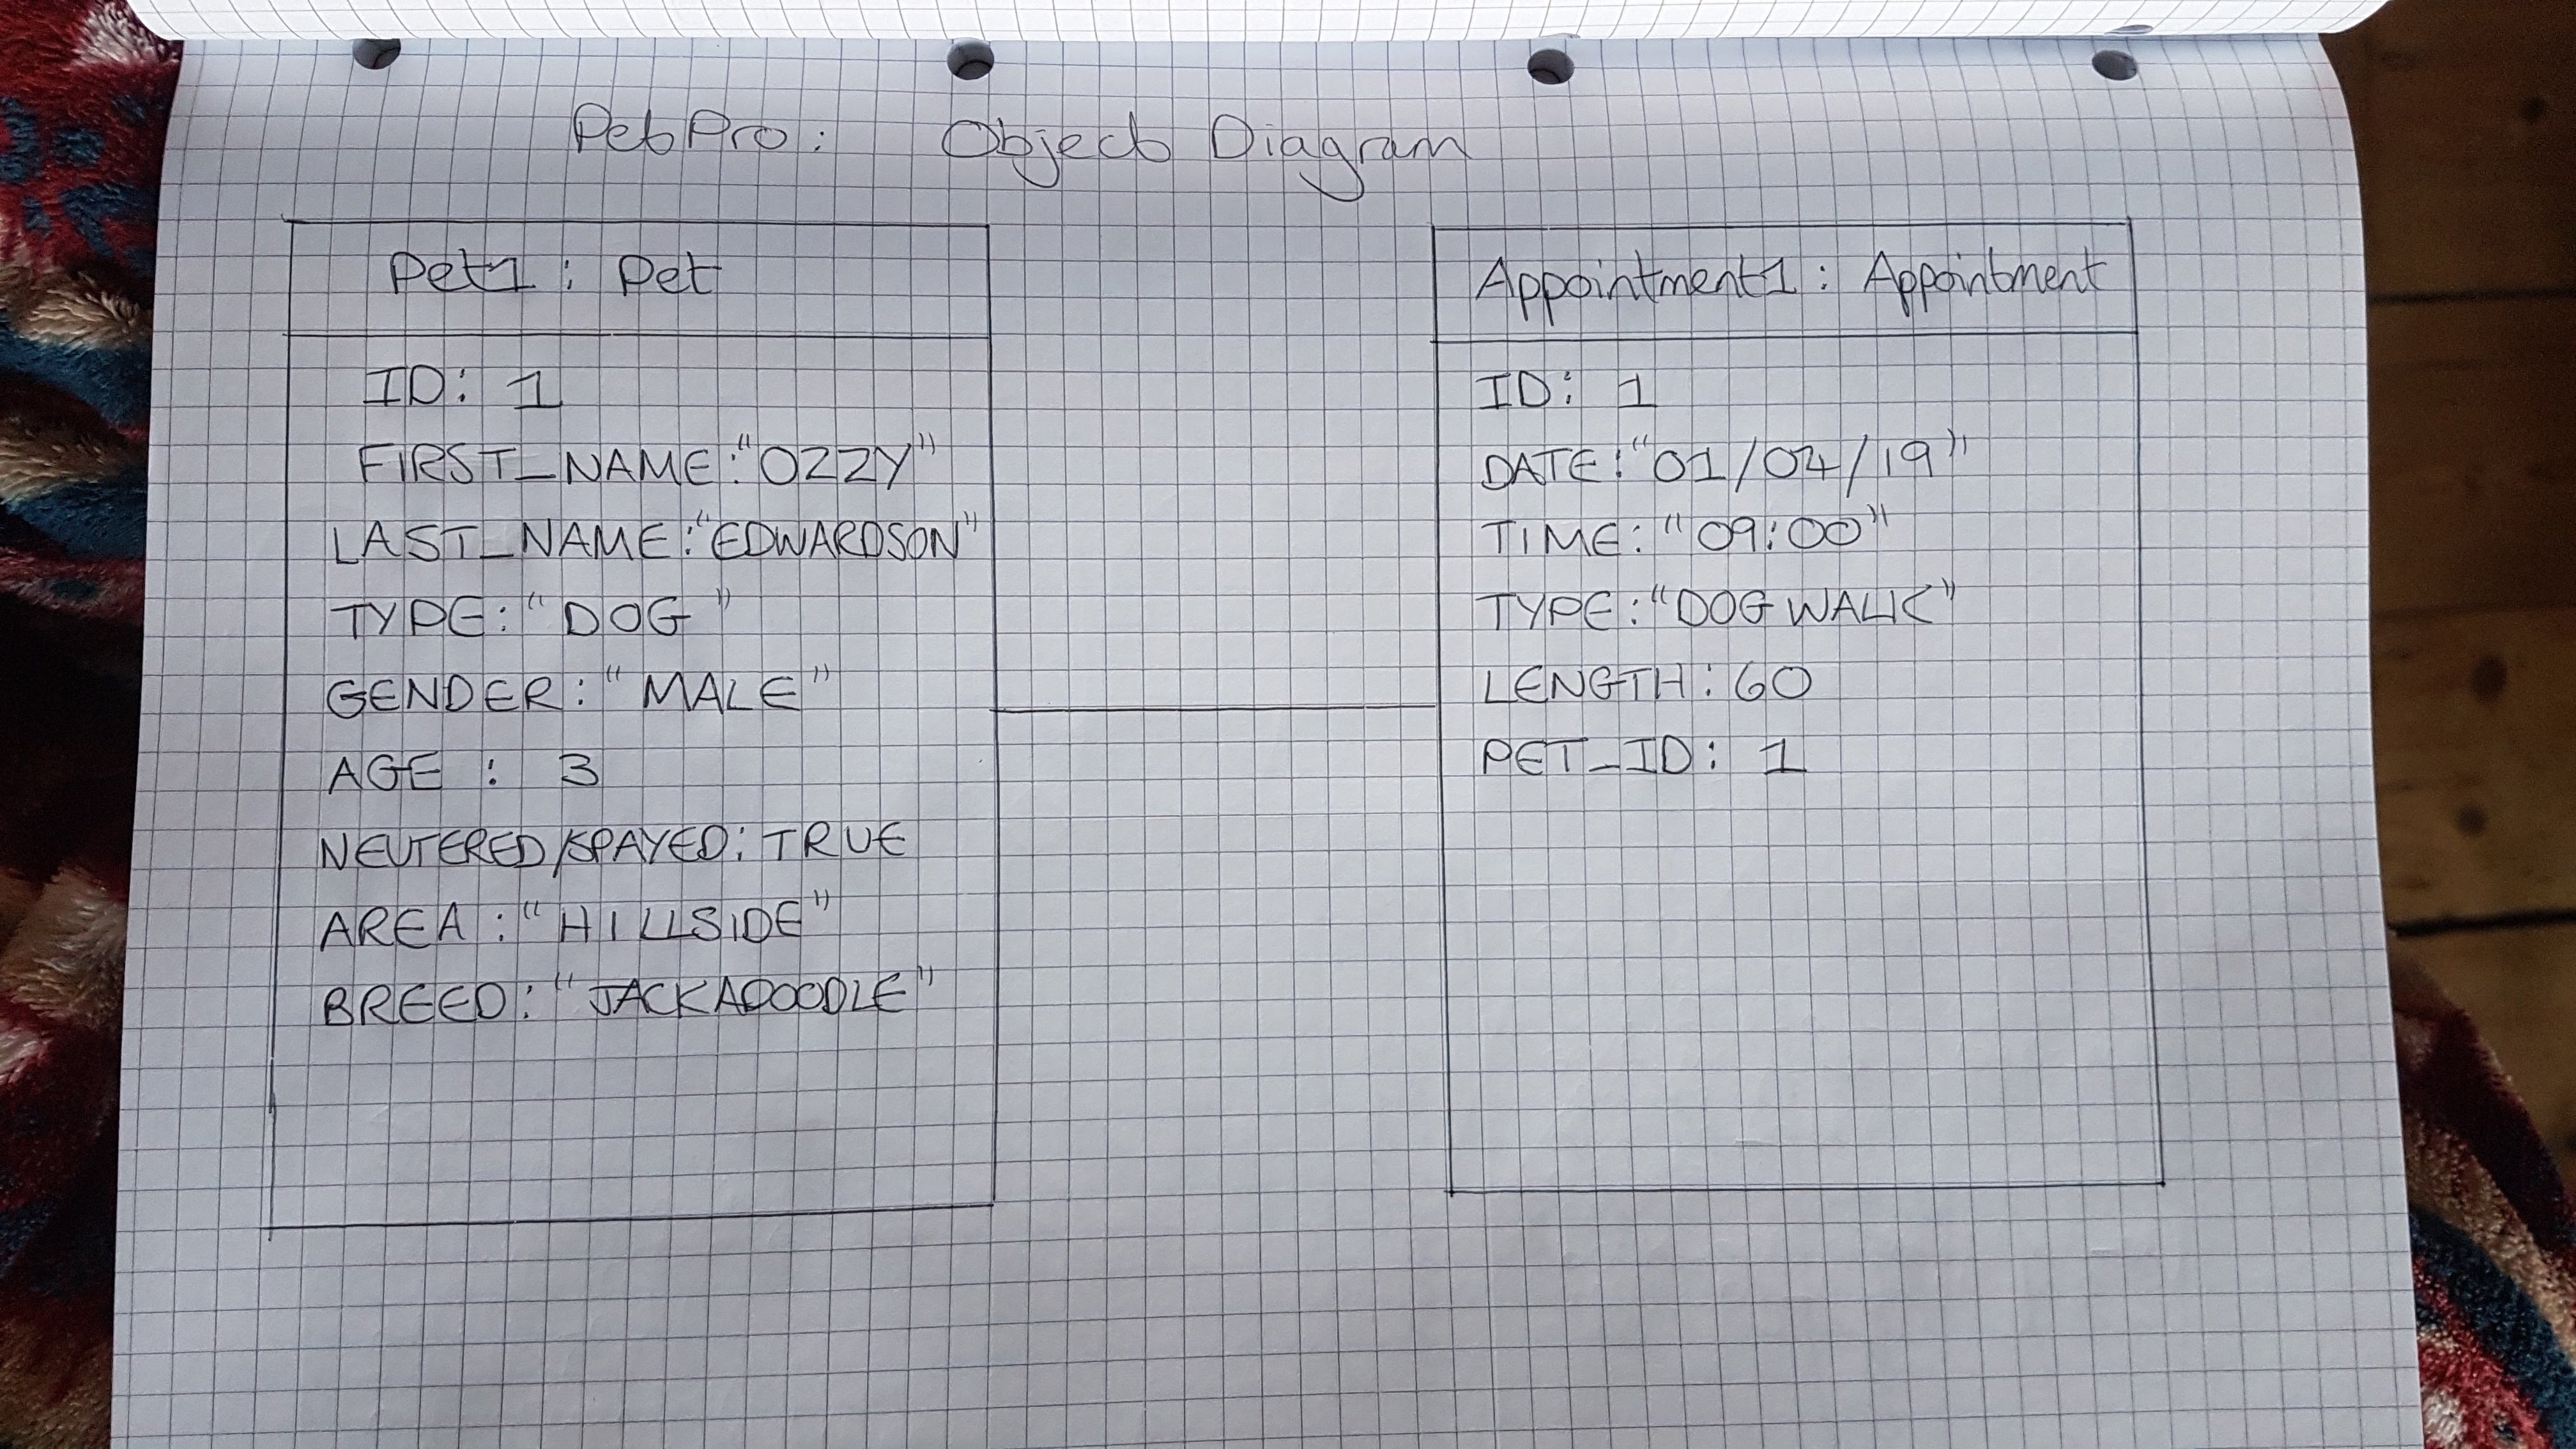 PetPro: Object Diagram
Pet1 : Pet
ID: 1
FIRST_NAME:"OZZY"
LAST_NAME:"EDWARDSON"
TYPE:"DOG"
GENDER:"MALE"
AGE : 3
NEUTERED/SPAYED: TRUE
AREA :"HILLSIDE"
BREED:"JACKADOODLE"
Appointment1: Appointment
ID: 1
DATE:"01/04/19"
TIME:"09:00"
TYPE:"DOG WALK"
LENGTH:60
PET_ID: 1